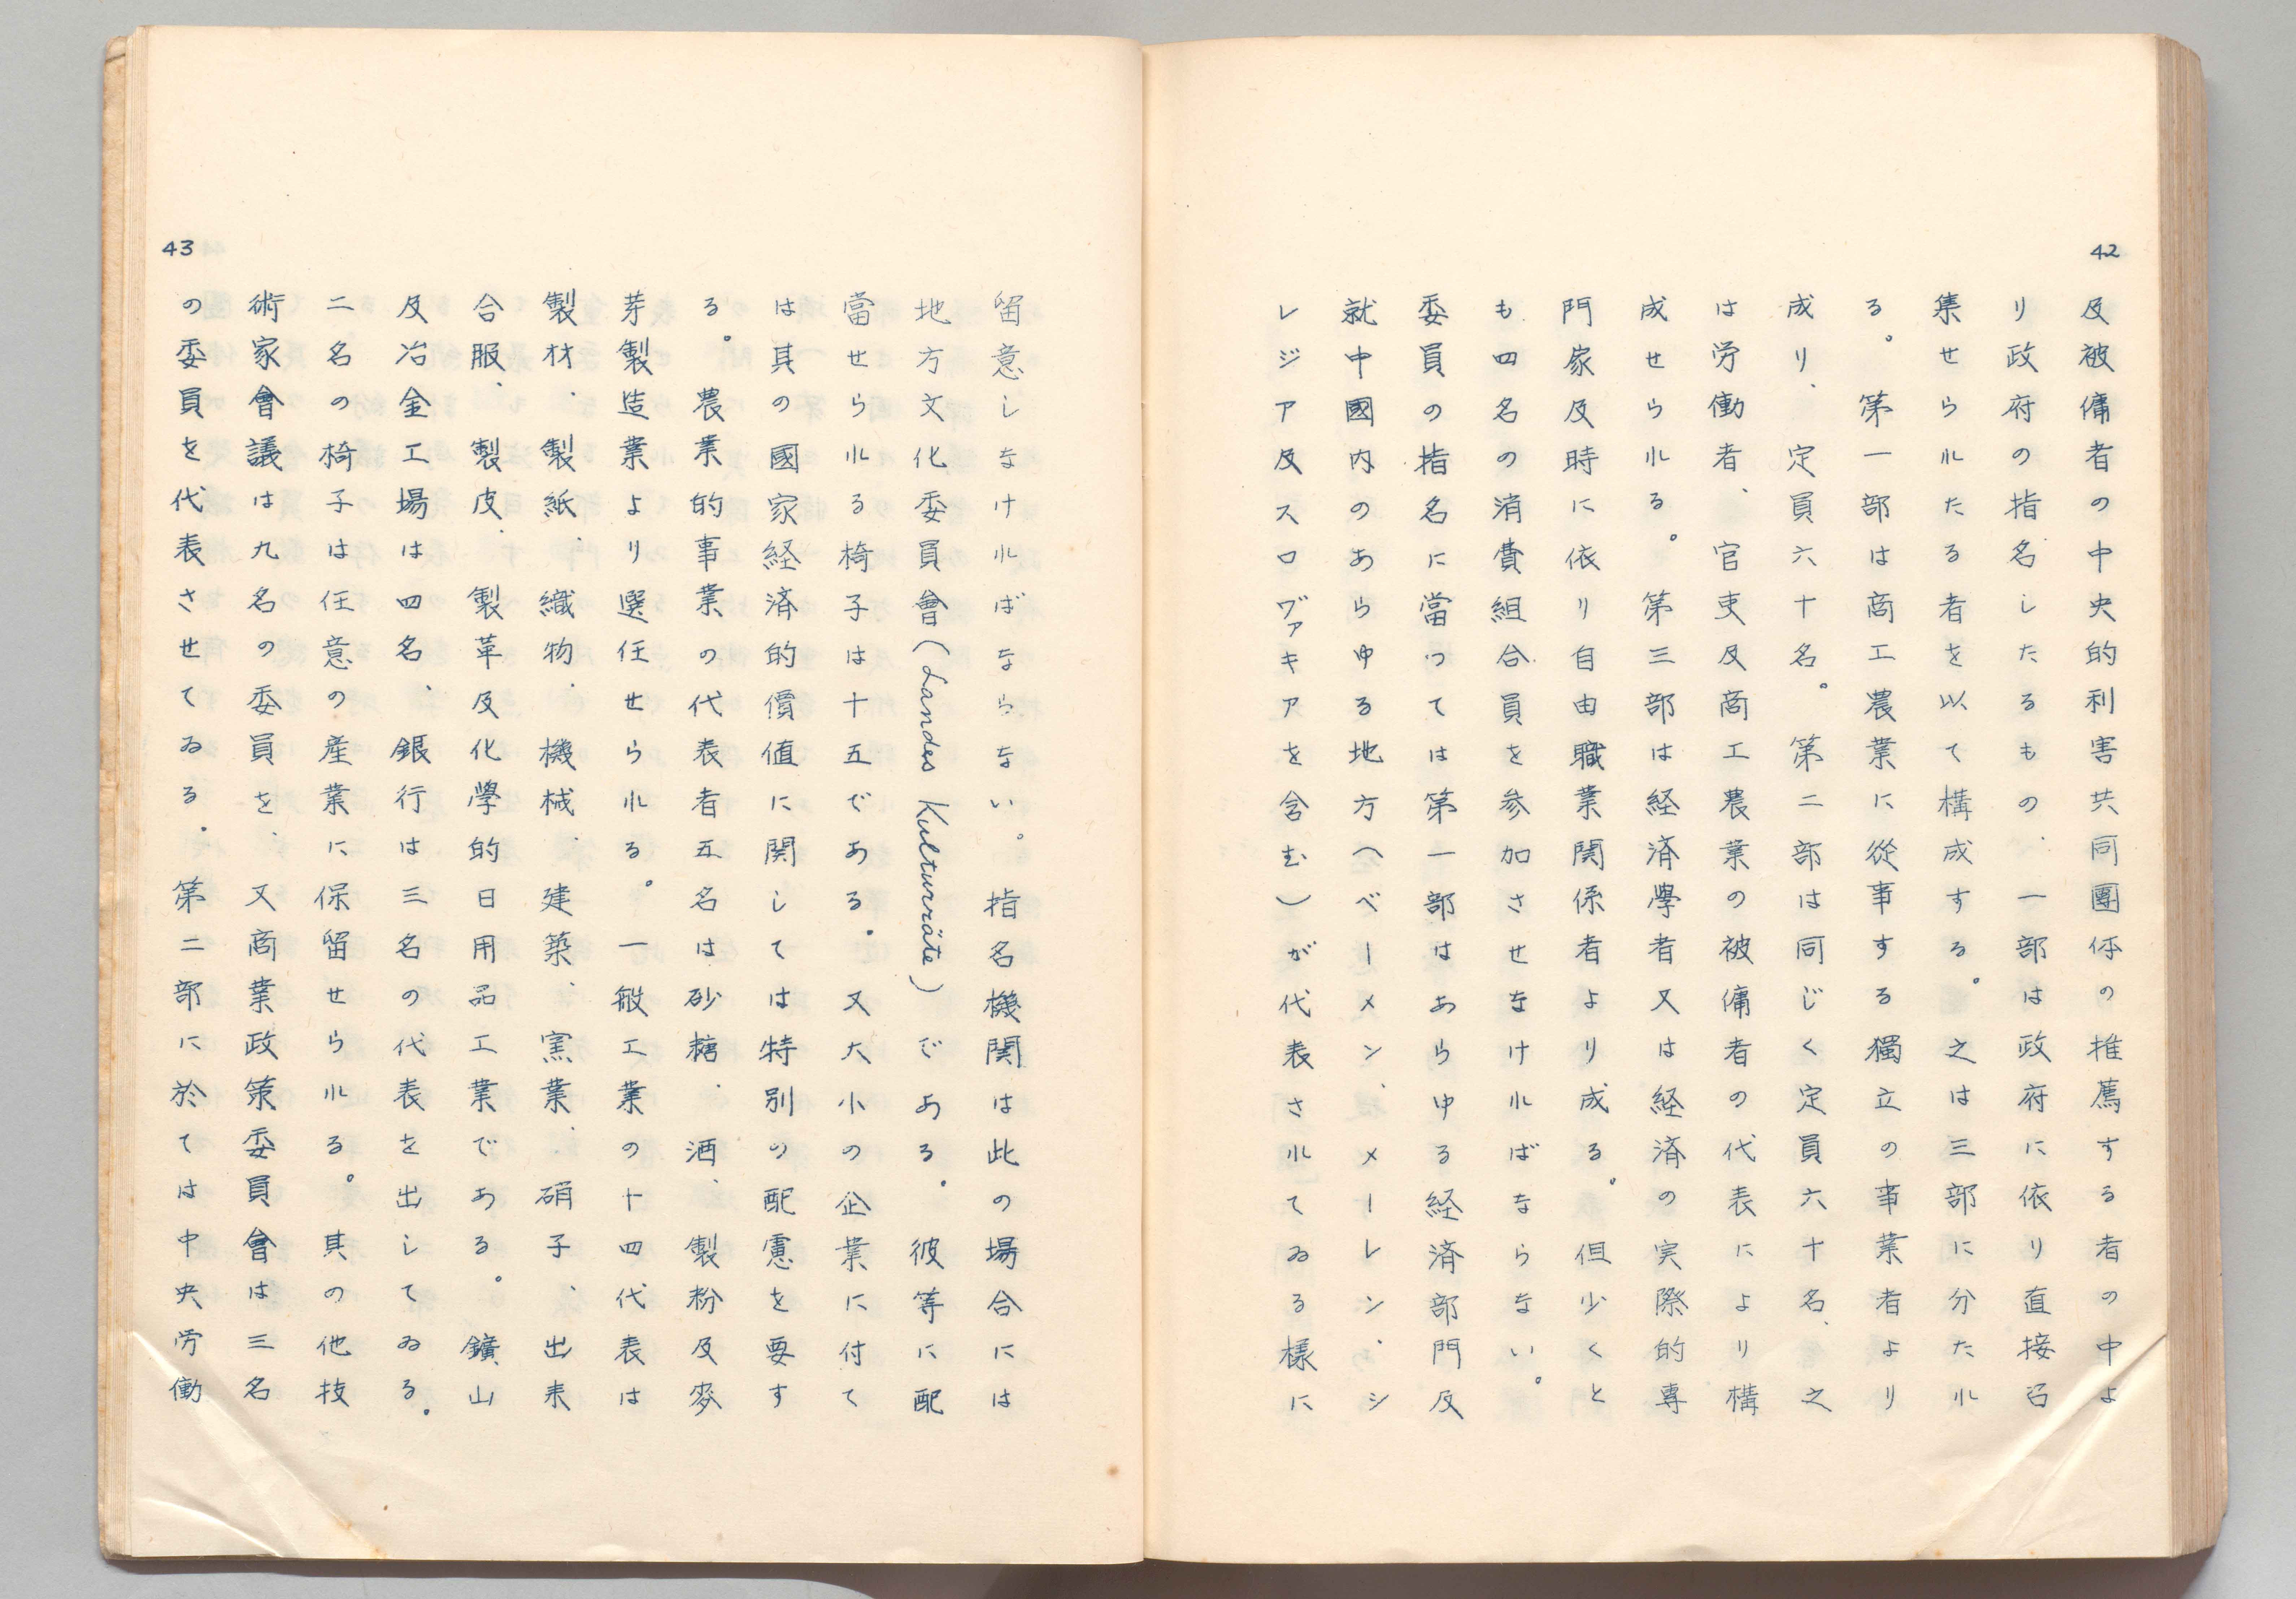 42
及被傭者の中央的利害共同團体の推薦する者の中よ
り政府の指名したるもの、一部は政府に依り直接召
集せられたる者を以て構成する。之は三部に分たれ
る。第一部は商工農業に從事する獨立の事業者より
成り、定員六十名。第二部は同じく定員六十名、之
は労働者、官吏及商工農業の被傭者の代表により構
成せられる。第三部は経済學者又は経済の実際的專
門家及時に依り自由職業関係者より成る。但少くと
も四名の消費組合員を参加させなければならない。
委員の指名に當つては第一部はあらゆる経済部門及
就中國内のあらゆる地方(ベーメン、メーレン、シ
レジア及スロヴァキアを含む)が代表されてゐる様に
43
留意しなければならない。指名機関は此の場合には
地方文化委員會(Landes Kulturräte)である。彼等に配
當せられる椅子は十五である。又大小の企業に付て
は其の國家経済的價値に関しては特別の配慮を要す
る。農業的事業の代表者五名は砂糖、酒、製粉及麥
芽製造業より選任せられる。一般工業の十四代表は
製材、製紙、織物、機械、建築、窯業、硝子、出来
合服、製皮、製革及化學的日用品工業である。鑛山
及冶金工場は四名、銀行は三名の代表を出してゐる。
二名の椅子は任意の産業に保留せられる。其の他技
術家會議は九名の委員を、又商業政策委員會は三名
の委員を代表させてゐる。第二部に於ては中央労働